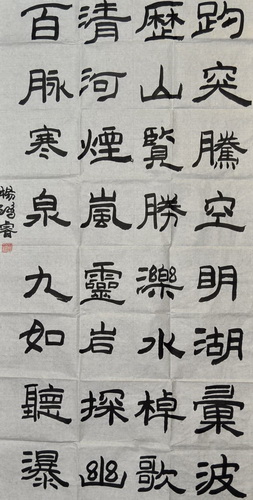 趵突騰空明湖彙波
歷山覽勝濼水棹歌
清河煙嵐靈岩探幽
百脉寒泉九如聽瀑